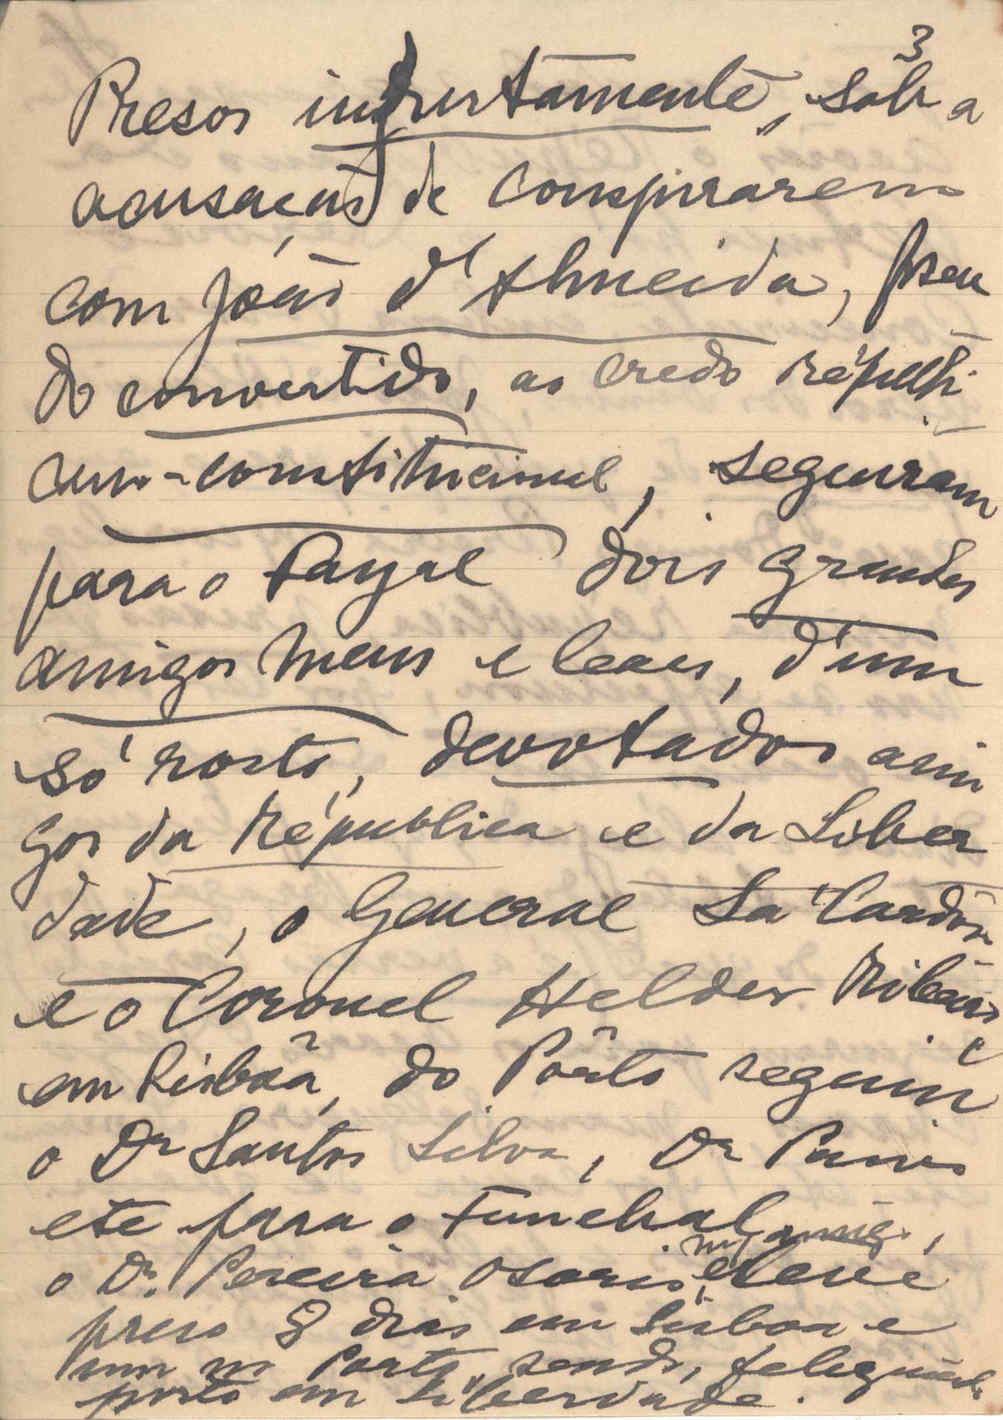 3
Presos injustamente, sôb a
acusação de conspirarem
com João d'Almeida, pseu
do convertido, ao credo républi
cano-constitucional, seguiram
para o Fayal dois grandes
amigos meus e leaes, d'um
só rosto, devotados ami
gos da Républica e da Liber
dade, o General Sá Cardoso
e o Coronel Helder Ribeiro
em Lisbôa, do Pôrto seguiu
o Dr Santos Silva, Dr
etc para o Funchal,
o Dr. Pereira Osorio, esteve
preso 8 dias em Lisboa e
um no Porto, sendo, felizmente
posto em Liberdade.